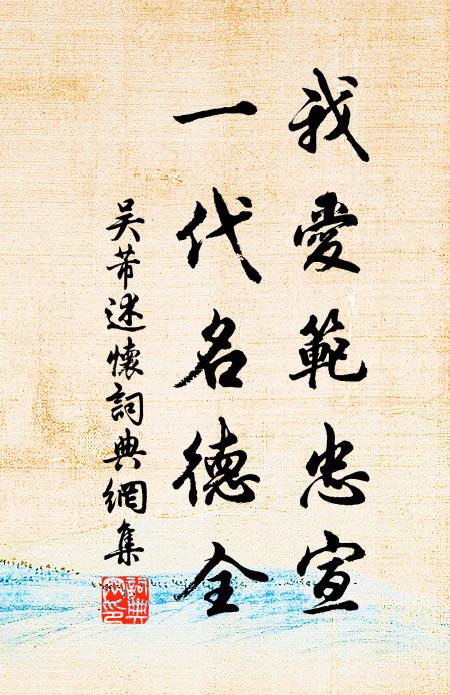 我愛範忠宣
一代名德全
吴芾述懷詞典網集